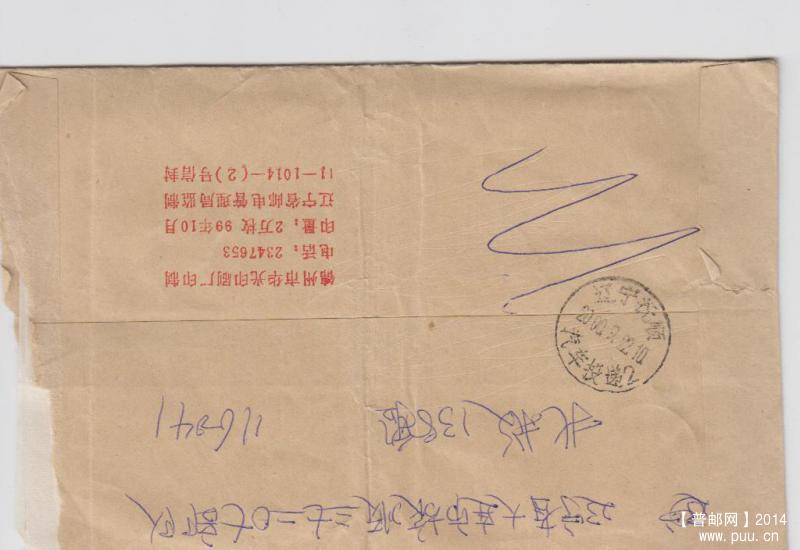 辽宁省大连市旅顺三七二〇七部队
116041
锦州市华光印刷厂印制
电话：2347653
印量：2万枚 99年10月
辽宁省邮电管理局监制
11—1014—(2)号信封
辽宁抚顺
【普邮网】2014
www.puu.cn